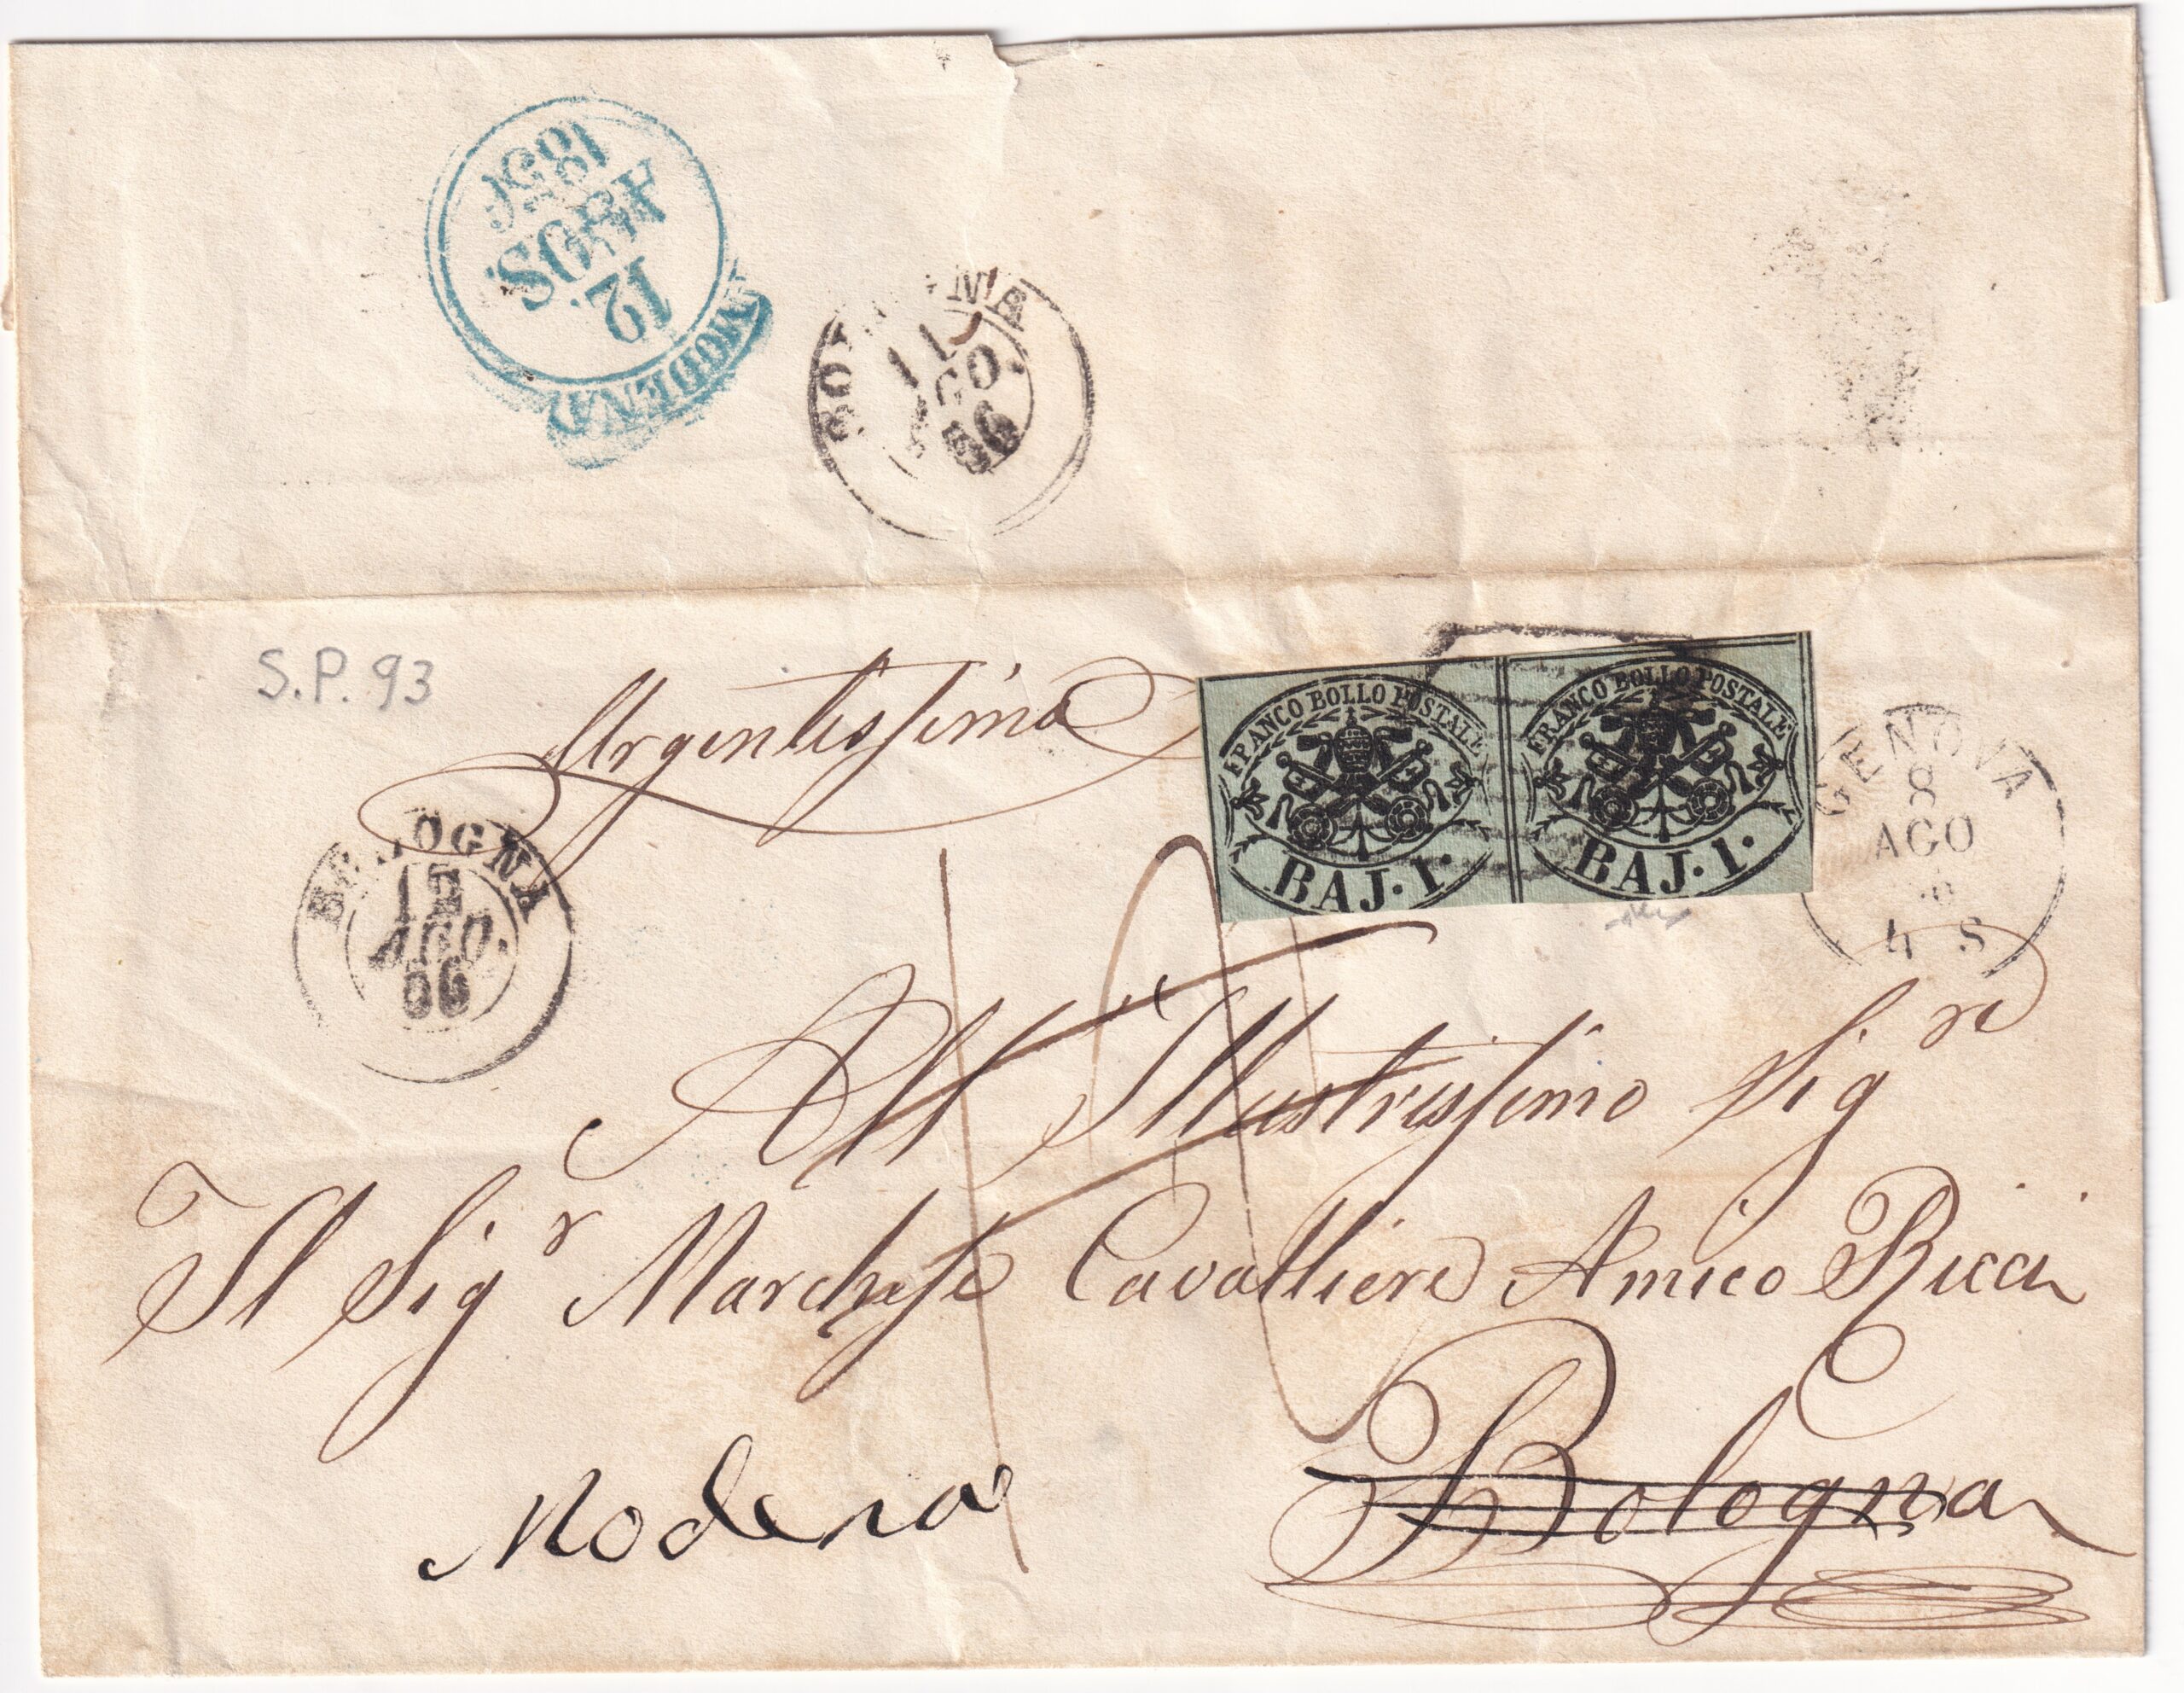 MODENA
12
AGOS.
185
BOLOGNA
11
AGO.
56
S.P. 93
Urgentissima
FRANCO BOLLO POSTALE
BAJ. 1.
FRANCO BOLLO POSTALE
BAJ. 1.
GENOVA
8
AGO
4 S
BOLOGNA
12
AGO.
56
All' Illustrissimo Sigre
Il Sigr Marchese Cavalliere Amico Ricci
Bologna
Modena